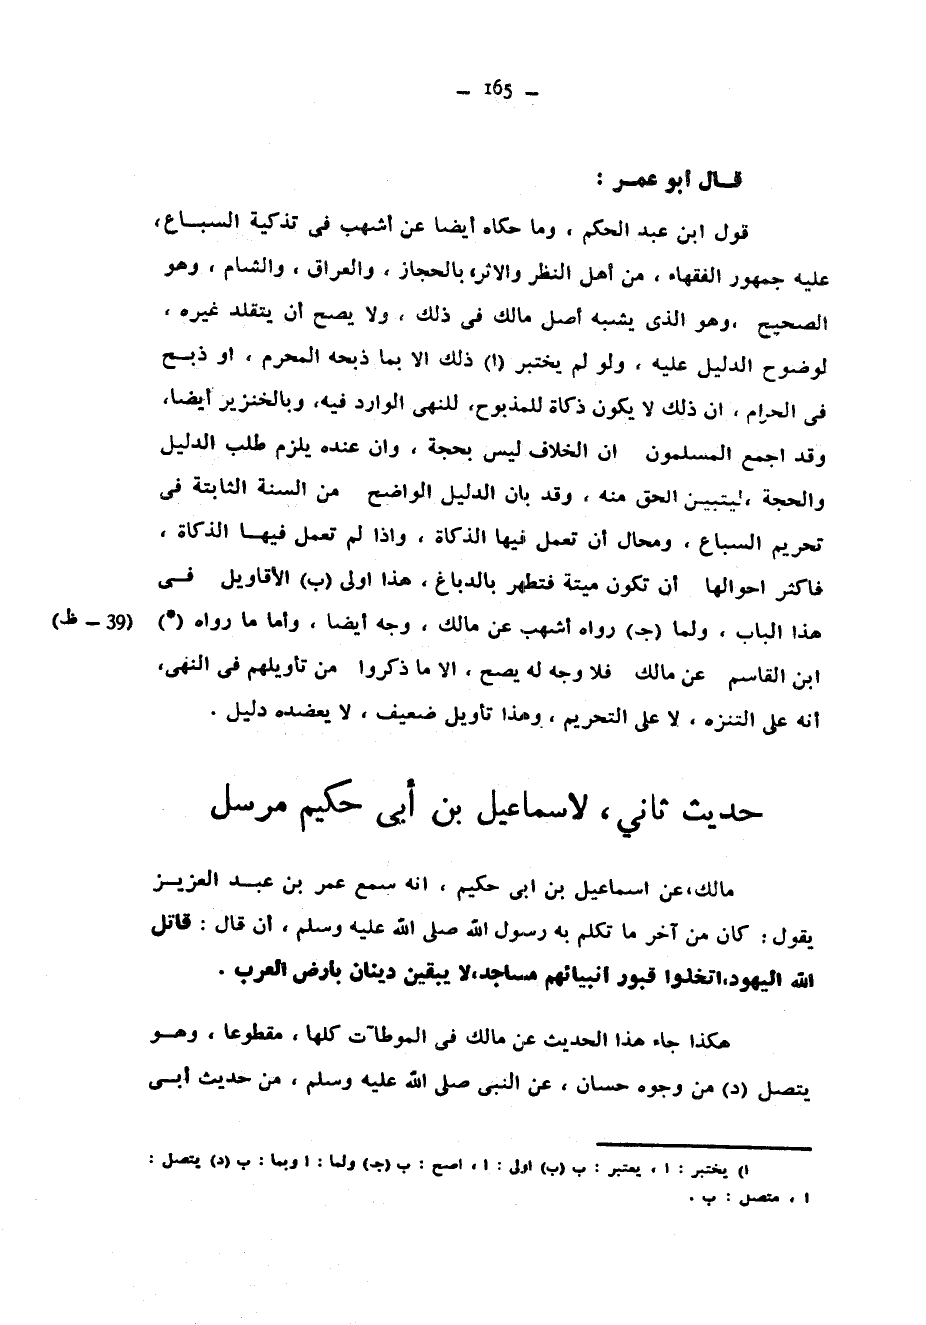 – 165 –
قــال أبو عمـر :
قول ابن عبد الحكم ، وما حكاه أيضا عن أشهب فى تذكية السبـــاع،
عليه جمهور الفقهاء ، من أهل النظر والاثر، بالحجاز ، والعراق ، والشام ، وهو
الصحيح ،وهو الذى يشبه أصل مالك فى ذلك ، ولا يصح أن يتقلد غيره ،
لوضوح الدليل عليه ، ولو لم يختبر (ا) ذلك الا بما ذبحه المحرم ، او ذبــح
فى الحرام ، ان ذلك لا يكون ذكاة للمذبوح، للنهى الوارد فيه، وبالخنزير أيضا،
وقد اجمع المسلمون ان الخلاف ليس بحجة ، وان عنده يلزم طلب الدليل
والحجة ،ليتبيـن الحق منه ، وقد بان الدليل الواضح من السنة الثابتة فى
تحريم السباع ، ومحال أن تعمل فيها الذكاة ، واذا لم تعمل فيهــا الذكاة ،
فاكثر احوالها أن تكون ميتة فتطهر بالدباغ ، هذا اولى (ب) الأقاويل فــى
هذا الباب ، ولما (جـ) رواه أشهب عن مالك ، وجه أيضا ، وأما ما رواه (*) (39 – ظ)
ابن القاسم عن مالك فلا وجه له يصح ، الا ما ذكروا من تأويلهم فى النهى،
أنه على التنزه ، لا على التحريم ، وهذا تأويل ضعيف ، لا يعضده دليل .
حديث ثاني ، لاسماعيل بن أبى حكيم مرسل
مالك،عن اسماعيل بن ابى حكيم ، انه سمع عمر بن عبــد العزيــز
يقول : كان من آخر ما تكلم به رسول الله صلى الله عليه وسلم ، أن قال : قاتل
الله اليهود،اتخذوا قبور أنبيائهم مساجد،لا يبقين دينان بأرض العرب .
هكذا جاء هذا الحديث عن مالك فى الموطآت كلها ، مقطوعا ، وهــو
يتصل (د) من وجوه حسان ، عن النبى صلى الله عليه وسلم ، من حديث أبــى
ا) يختبر : ا ، يعتبر : ب (ب) اولى : ا ، اصح : ب (جـ) ولما : ا وبما : ب (د) يتصل :
ا ، متصل : ب .